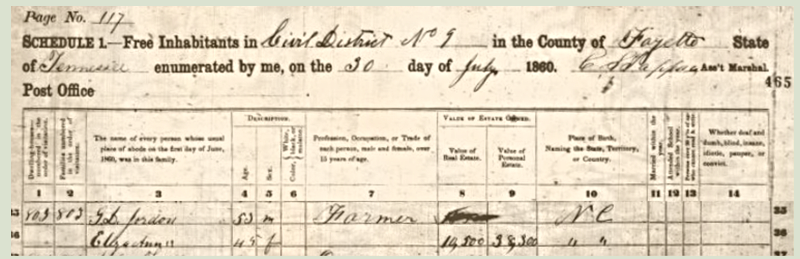 Page No. 117
SCHEDULE 1.—Free Inhabitants in Civil District No 9 in the County of Fayette State
of Tennessee enumerated by me, on the 30 day of July 1860. Ass't Marshal.
465
Post Office
DESCRIPTION. VALUE OF ESTATE OWNED.
Dwelling-houses numbered in the order of visitation.
Families numbered in the order of visitation.
The name of every person whose usual place of abode on the first day of June, 1860, was in this family.
Age.
Sex.
Color, White, black, or mulatto.
Profession, Occupation, or Trade of each person, male and female, over 15 years of age.
Value of Real Estate.
Value of Personal Estate.
Place of Birth, Naming the State, Territory, or Country.
Married within the year.
Attended School within the year.
Whether deaf and dumb, blind, insane, idiotic, pauper, or convict.
1 2 3 4 5 6 7 8 9 10 11 12 13 14
803 803 G.D. Jordon 53 m Farmer NC 35
36 Eliza Ann 45 f 10,500 38,300 " " 36